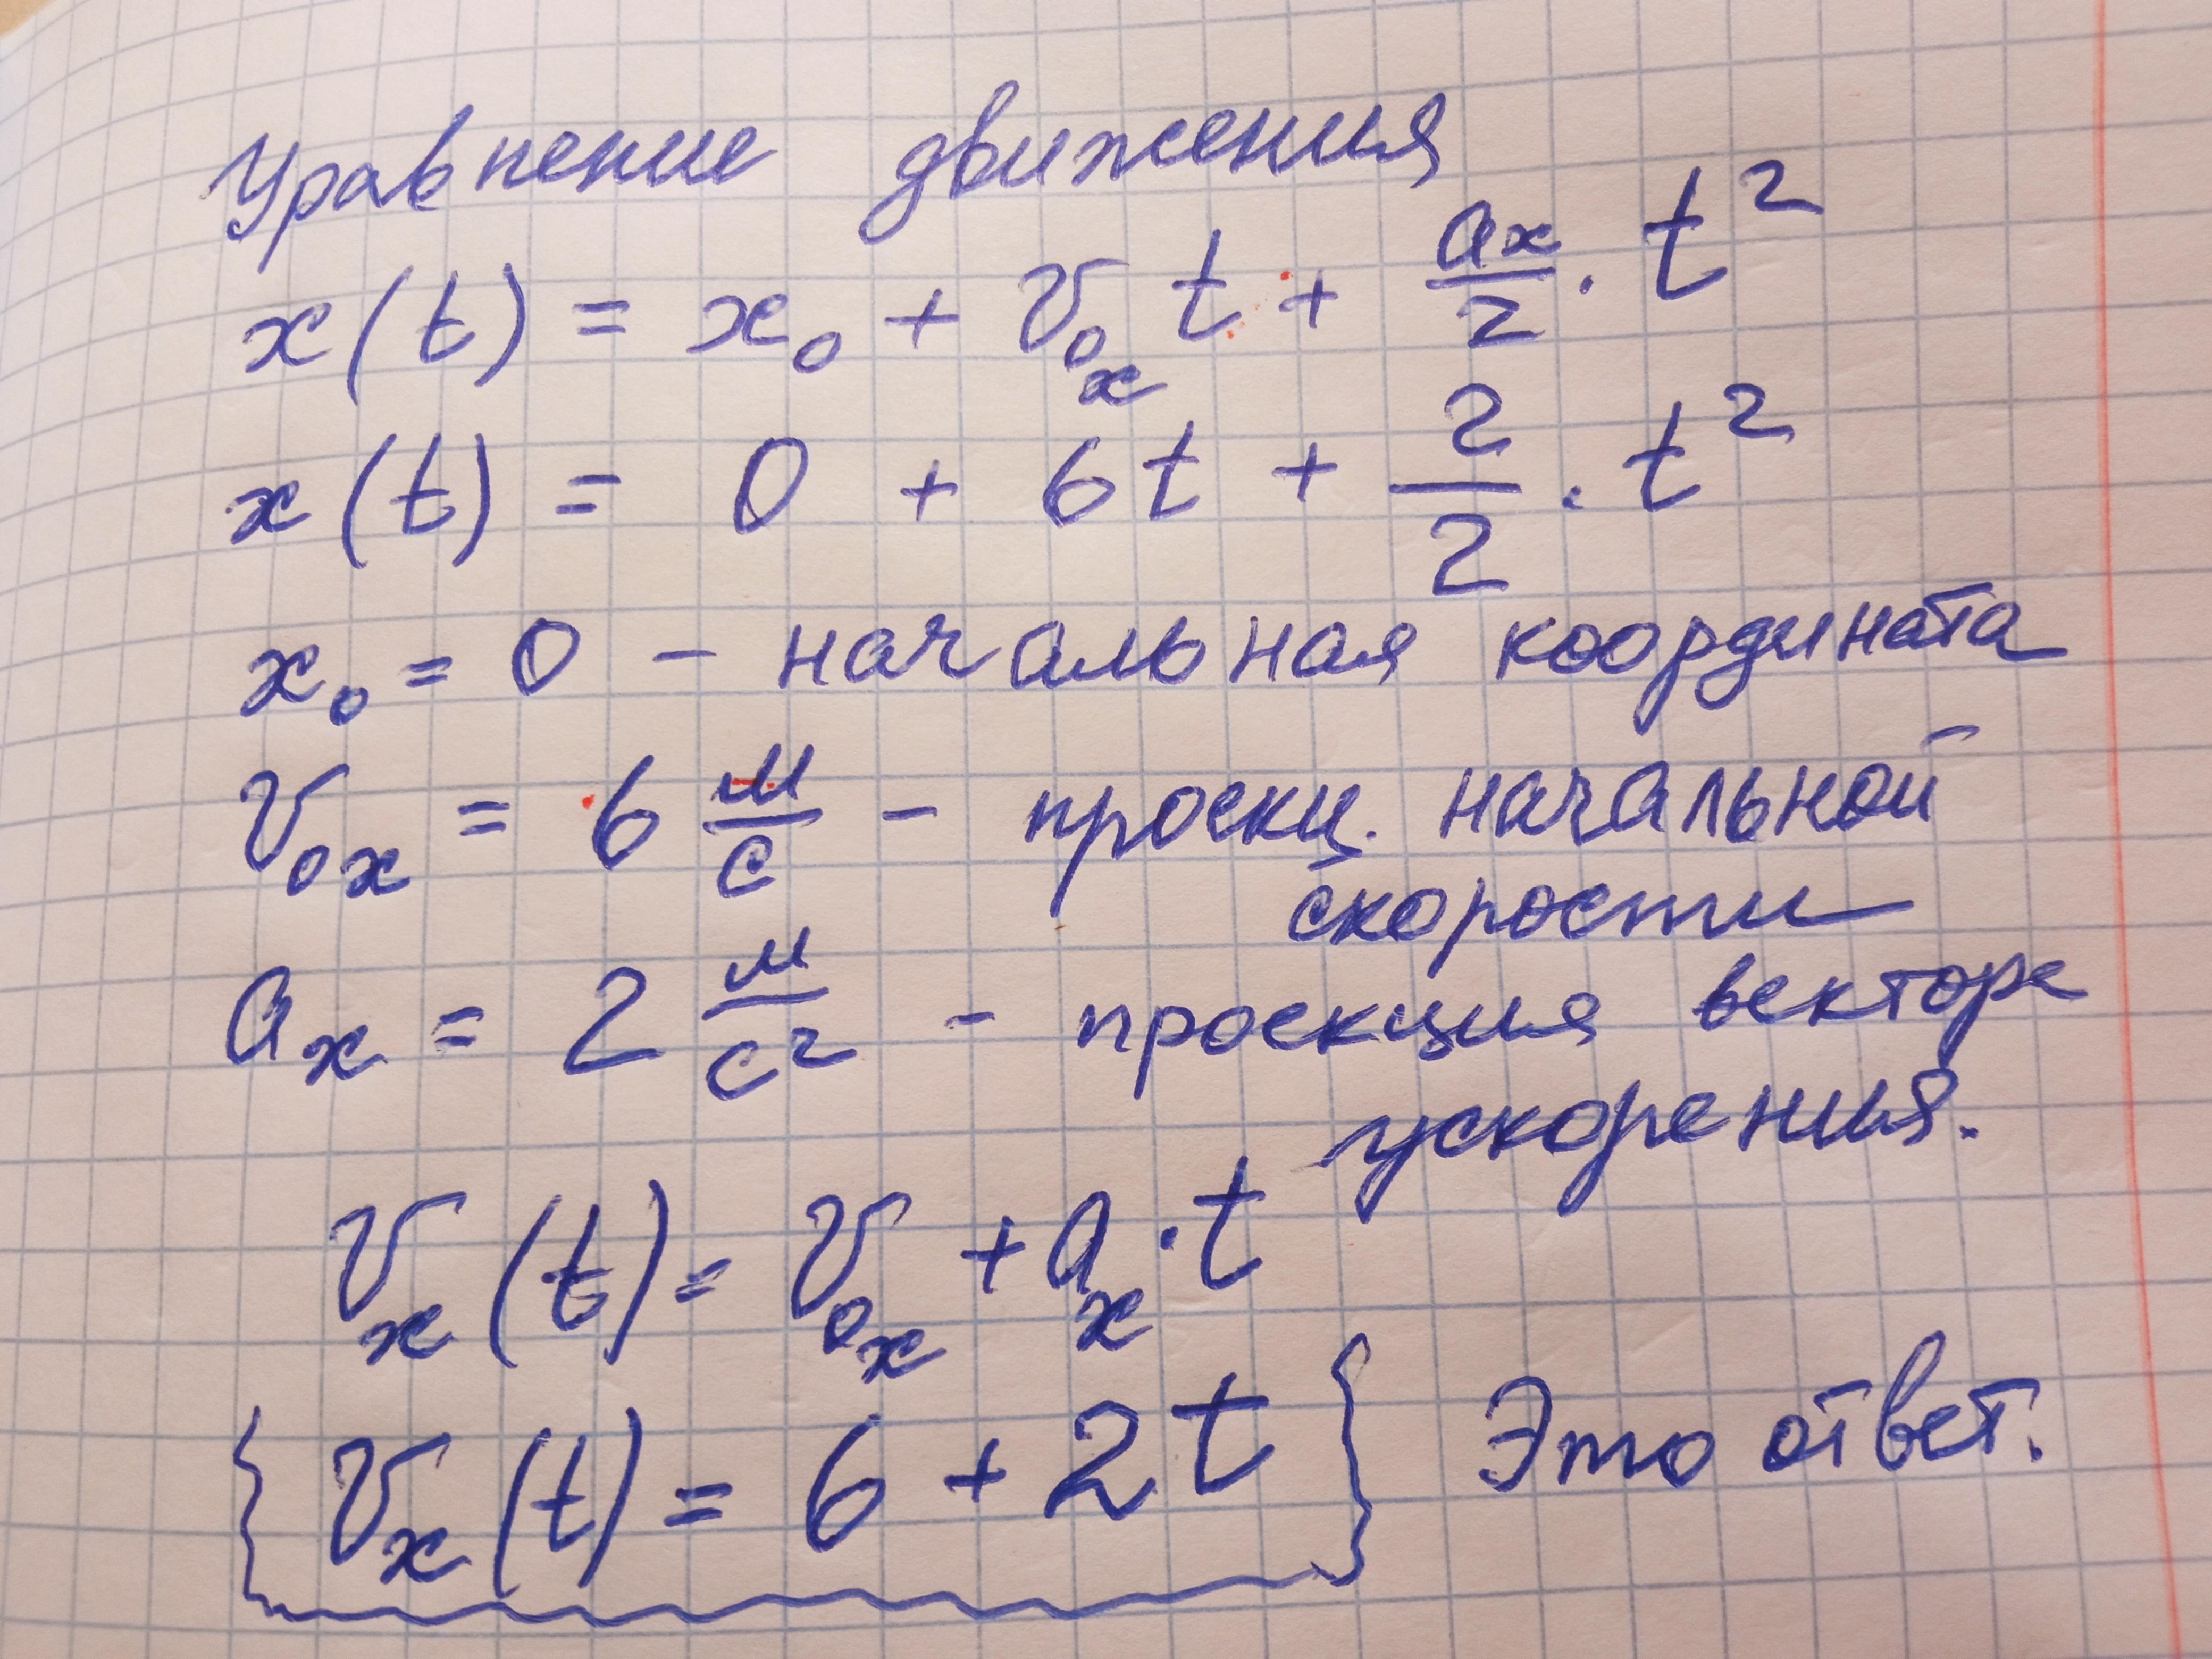 Уравнение движения
x(t) = x₀ + v₀ₓ t + aₓ/2 · t²
x(t) = 0 + 6t + 2/2 · t²
x₀ = 0 – начальная координата
v₀ₓ = 6 м/с – проекц. начальной
скорости
aₓ = 2 м/с² – проекция вектора
ускорения.
vₓ(t) = v₀ₓ + aₓ · t
{ vₓ(t) = 6 + 2t } Это ответ.